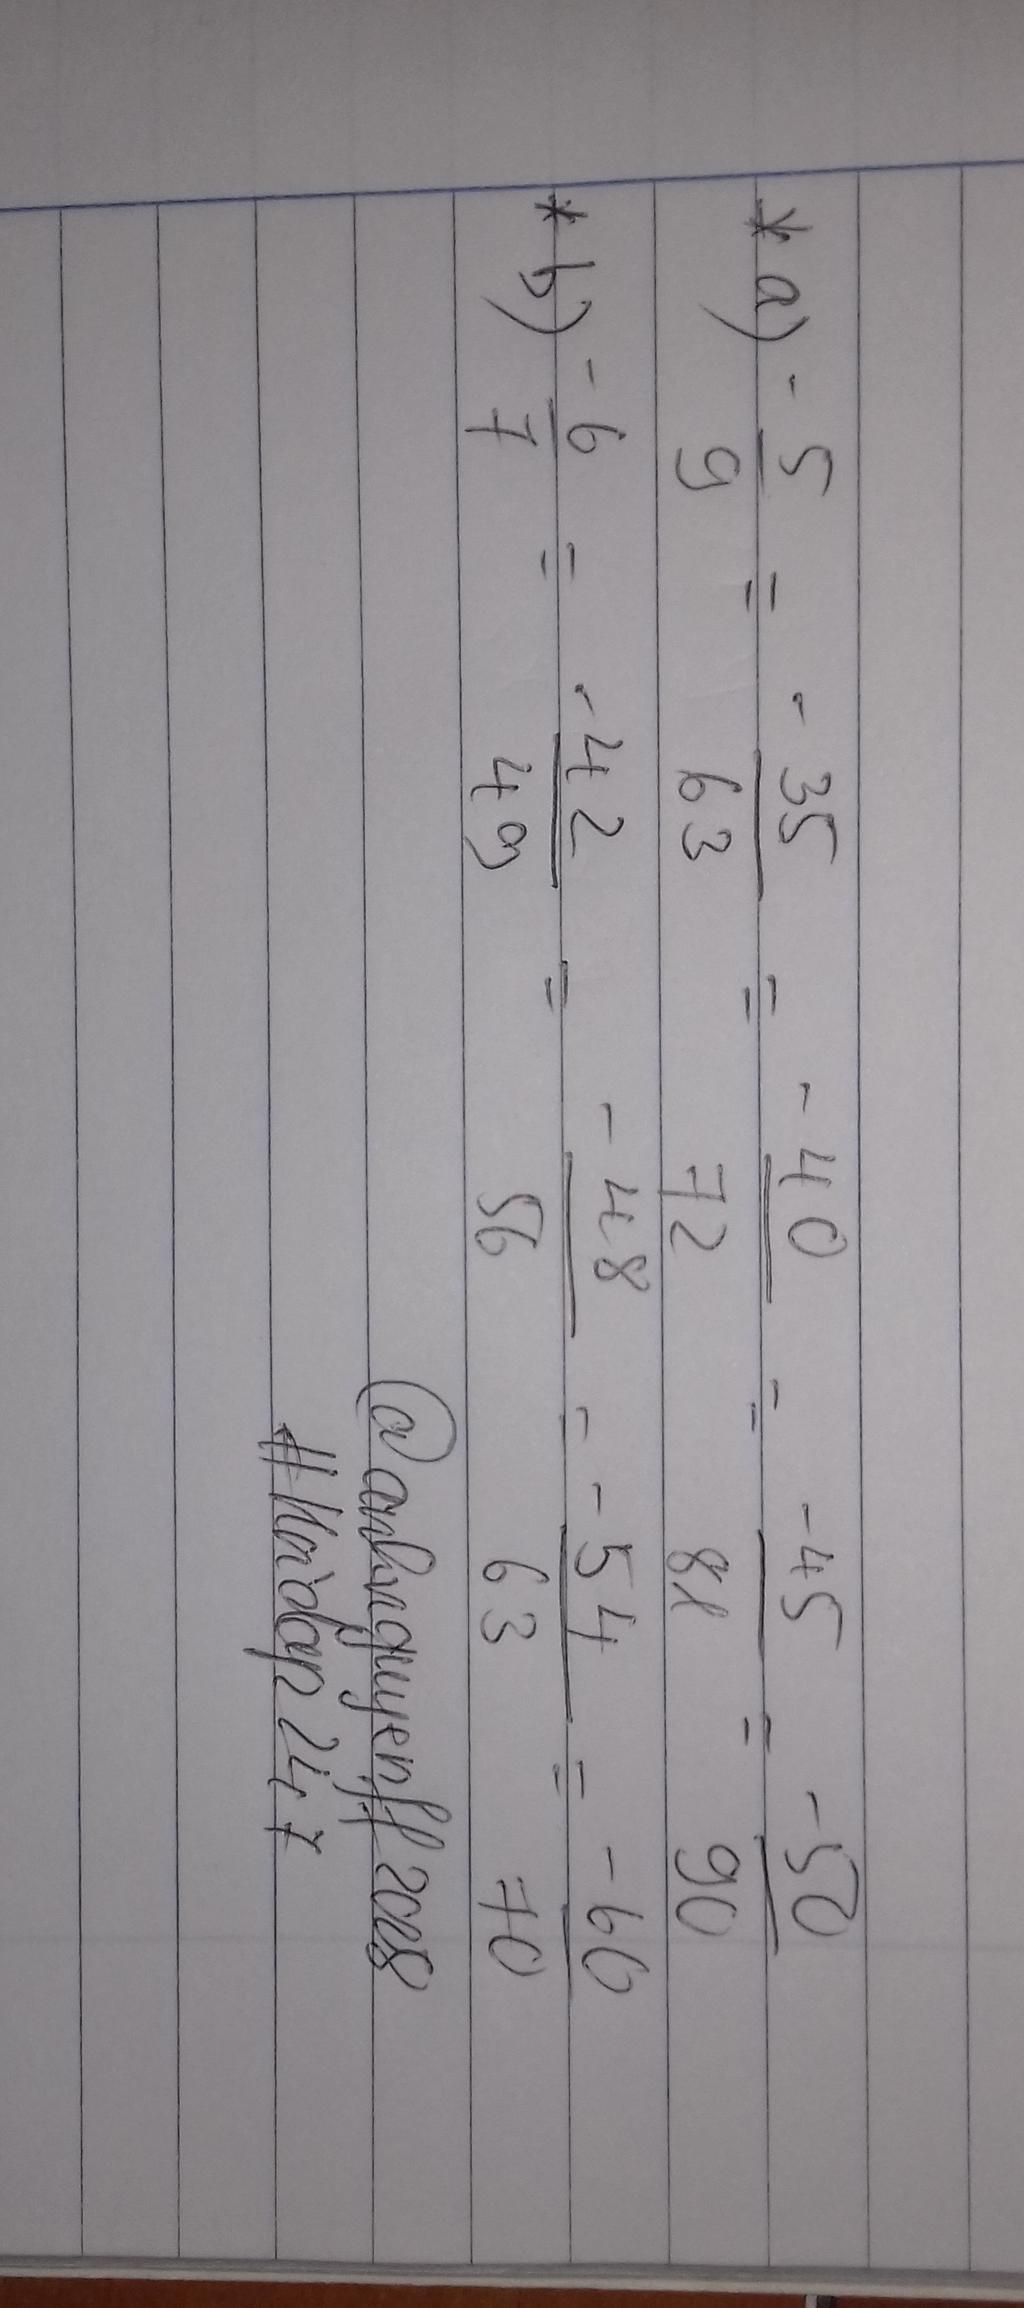 * a) -5/9 = -35/63 = -40/72 = -45/81 = -50/90
* b) -6/7 = -42/49 = -48/56 = -54/63 = -60/70
@anhnguyenff2008
#Hoidap247